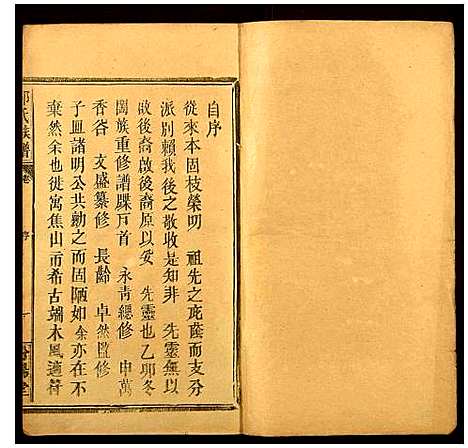 自序
從來本固枝榮叨　祖先之庇蔭而支分
派別賴我後之敬收是知非　先靈無以
啟後裔啟後裔原以妥　先靈也乙卯冬
闔族重修譜牒戶首　永青總修　申萬
香谷　文盛纂修　長齡　卓然監修
子皿諸明公共勷之而固陋如余亦在不
棄然余也徙寓焦山帀希古端木風適符
氏族譜
卷
序
一